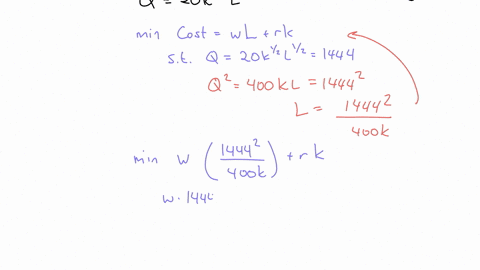 min Cost = wL + rk
s.t. Q = 20k^½ L^½ = 1444
Q² = 400kL = 1444²
L = 1444² / 400k
min w (1444² / 400k) + rk
w · 144